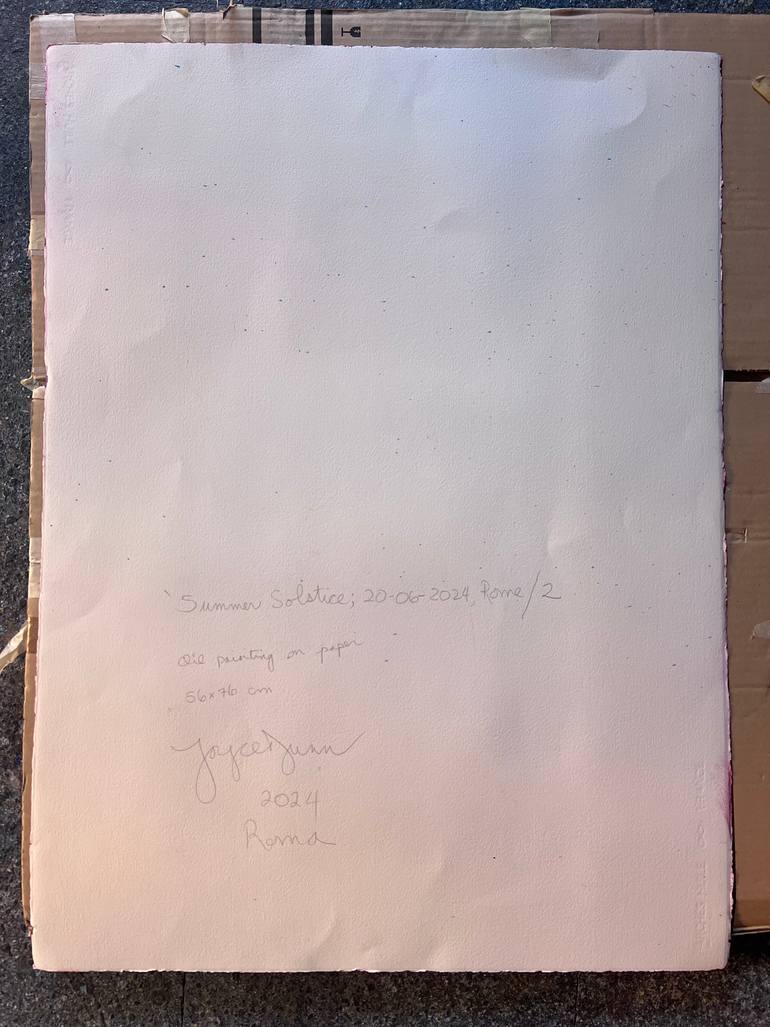 'Summer Solstice; 20-06-2024, Rome/2
Oil painting on paper
56x76 cm
Joyce Dunn
2024
Roma